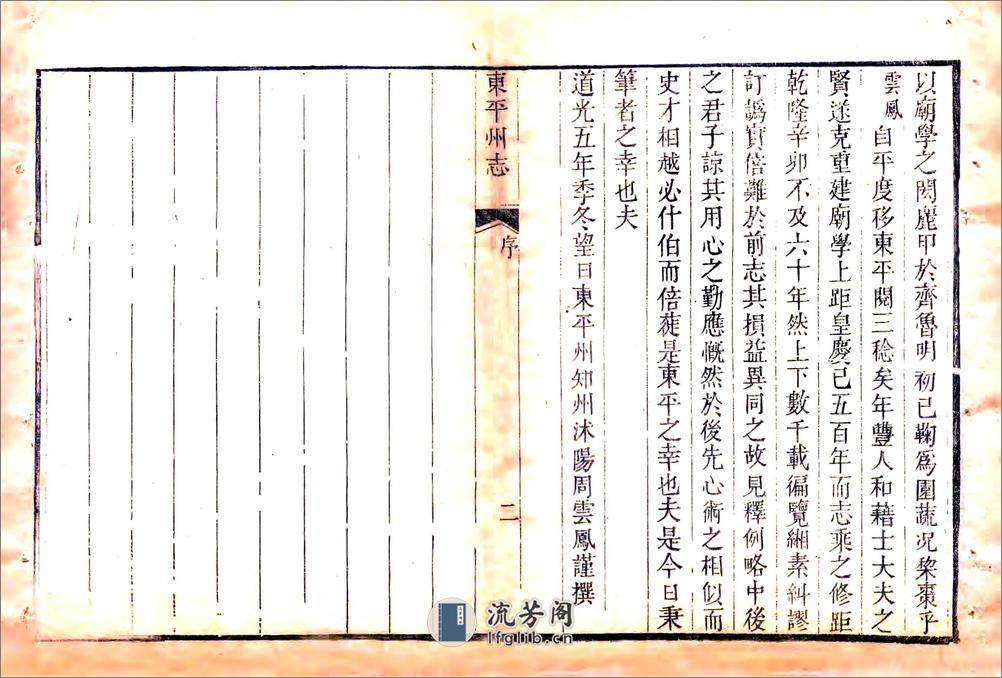 以廟學之閎麗甲於齊魯明初已鞠為園蔬况棃棗乎
雲鳳自平度移東平閱三稔矣年豐人和藉士大夫之
賢遂克重建廟學上距皇慶已五百年而志乘之修距
乾隆辛卯不及六十年然上下數千載徧覽緗素糾謬
訂譌實倍難於前志其損益異同之故見釋例略中後
之君子諒其用心之勤應慨然於後先心術之相似而
史才相越必什伯而倍蓰是東平之幸也夫是今日秉
筆者之幸也夫
道光五年季冬望日東平州知州沭陽周雲鳳謹撰
東平州志
序
二
流芳阁
lfglib.cn